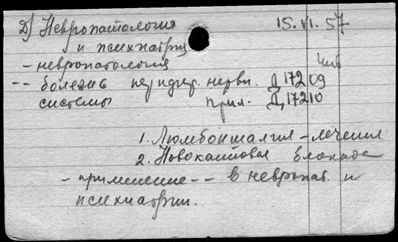 Д) Невропатология 15.VI.57
и психиатрия
- невропатология
-- болезнь периферг. нервн. Д 17209
системы прил. Д 17210
1. Люмбоишалгия - лечение
2. Новокаиновая блокада
- применение -- в невропат. и
психиатрии.